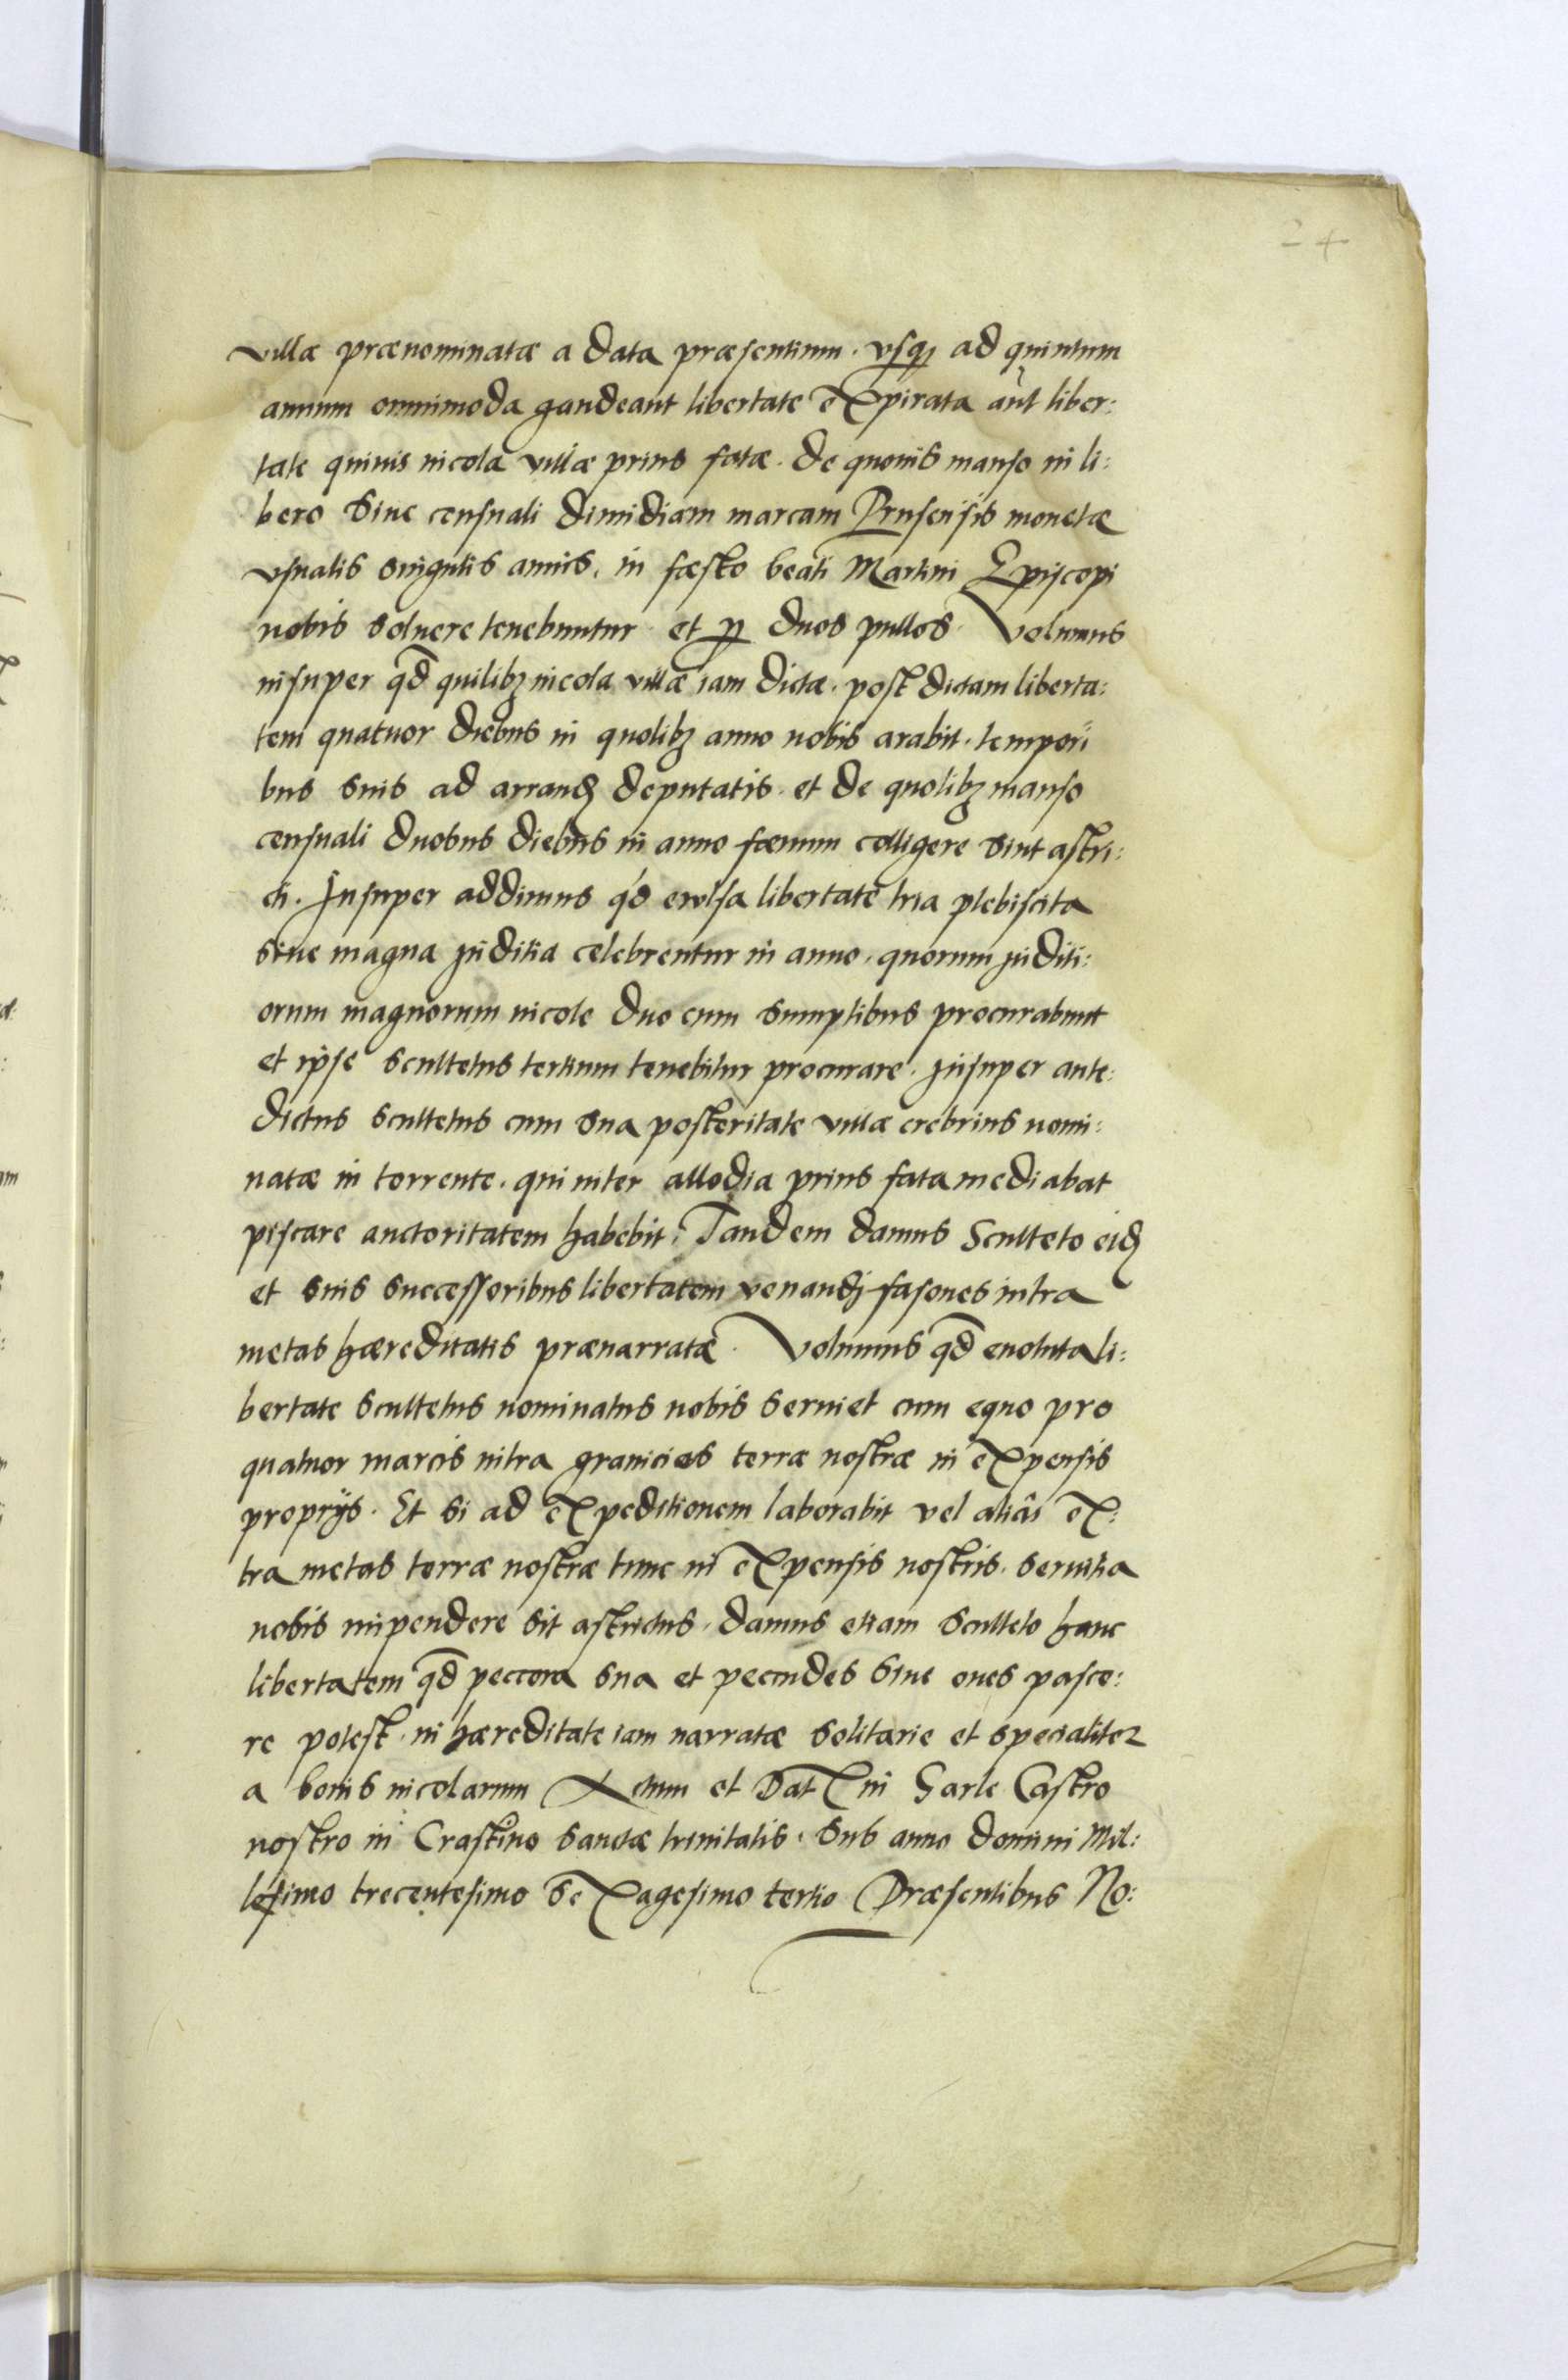 24
villæ prænominatæ a data præsentium. vsq₃ ad quintum
annum omnimoda gaudeant libertate expirata aut̃ liber:
tate quiuis incola villæ prius fatæ. de quouis manso in li:
bero siue censuali dimidiam marcam Prusensis monetæ
vsualis singulis annis. in fæsto beati Martini Episcopi
nobis soluere tenebuntur et p duos pullos. Volumus
insuper qd̄ quilib₃ incola villæ iam dictæ. post dictam liberta:
tem quatuor diebus in quolib₃ anno nobis arabit. tempori
bus suis ad arrand deputatis. et de quolib₃ manso
censuali duobus diebus in anno fœnum colligere sint astri:
cti. Insuper addimus qd euulsa libertate tria plebiscita
siue magna juditia celebrentur in anno. quorum juditi:
orum magnorum incole duo cum sumptibus procurabunt
et ipse scultetus tertium tenebitur procurare. Insuper ante:
dictus scultetus cum sua posteritate villæ crebrius nomi:
natæ in torrente. qui inter allodia prius fata mediabat
piscare auctoritatem habebit. Tandem damus Sculteto eid
et suis successoribus libertatem venandj fasones intra
metas hæreditatis prænarratæ. Volumus qd̄ euoluta li:
bertate scultetus nominatus nobis seruiet cum equo pro
quatuor marcis intra granicies terræ nostræ in expensis
proprijs. Et si ad expeditionem laborabit vel aliâs ex:
tra metas terræ nostræ tunc in expensis nostris. seruitia
nobis impendere sit astrictus. damus etiam sculteto hanc
libertatem qd̄ peccora sua et pecudes siue oues pasce:
re potest. in hæreditate iam narratæ solitarie et specialiter
a bonis incolarum Actum et Dat in Garle Castro
nostro in Crastino sanctæ trinitatis. Sub anno domini Mil:
lesimo trecentesimo sexagesimo tertio Præsentibus No: